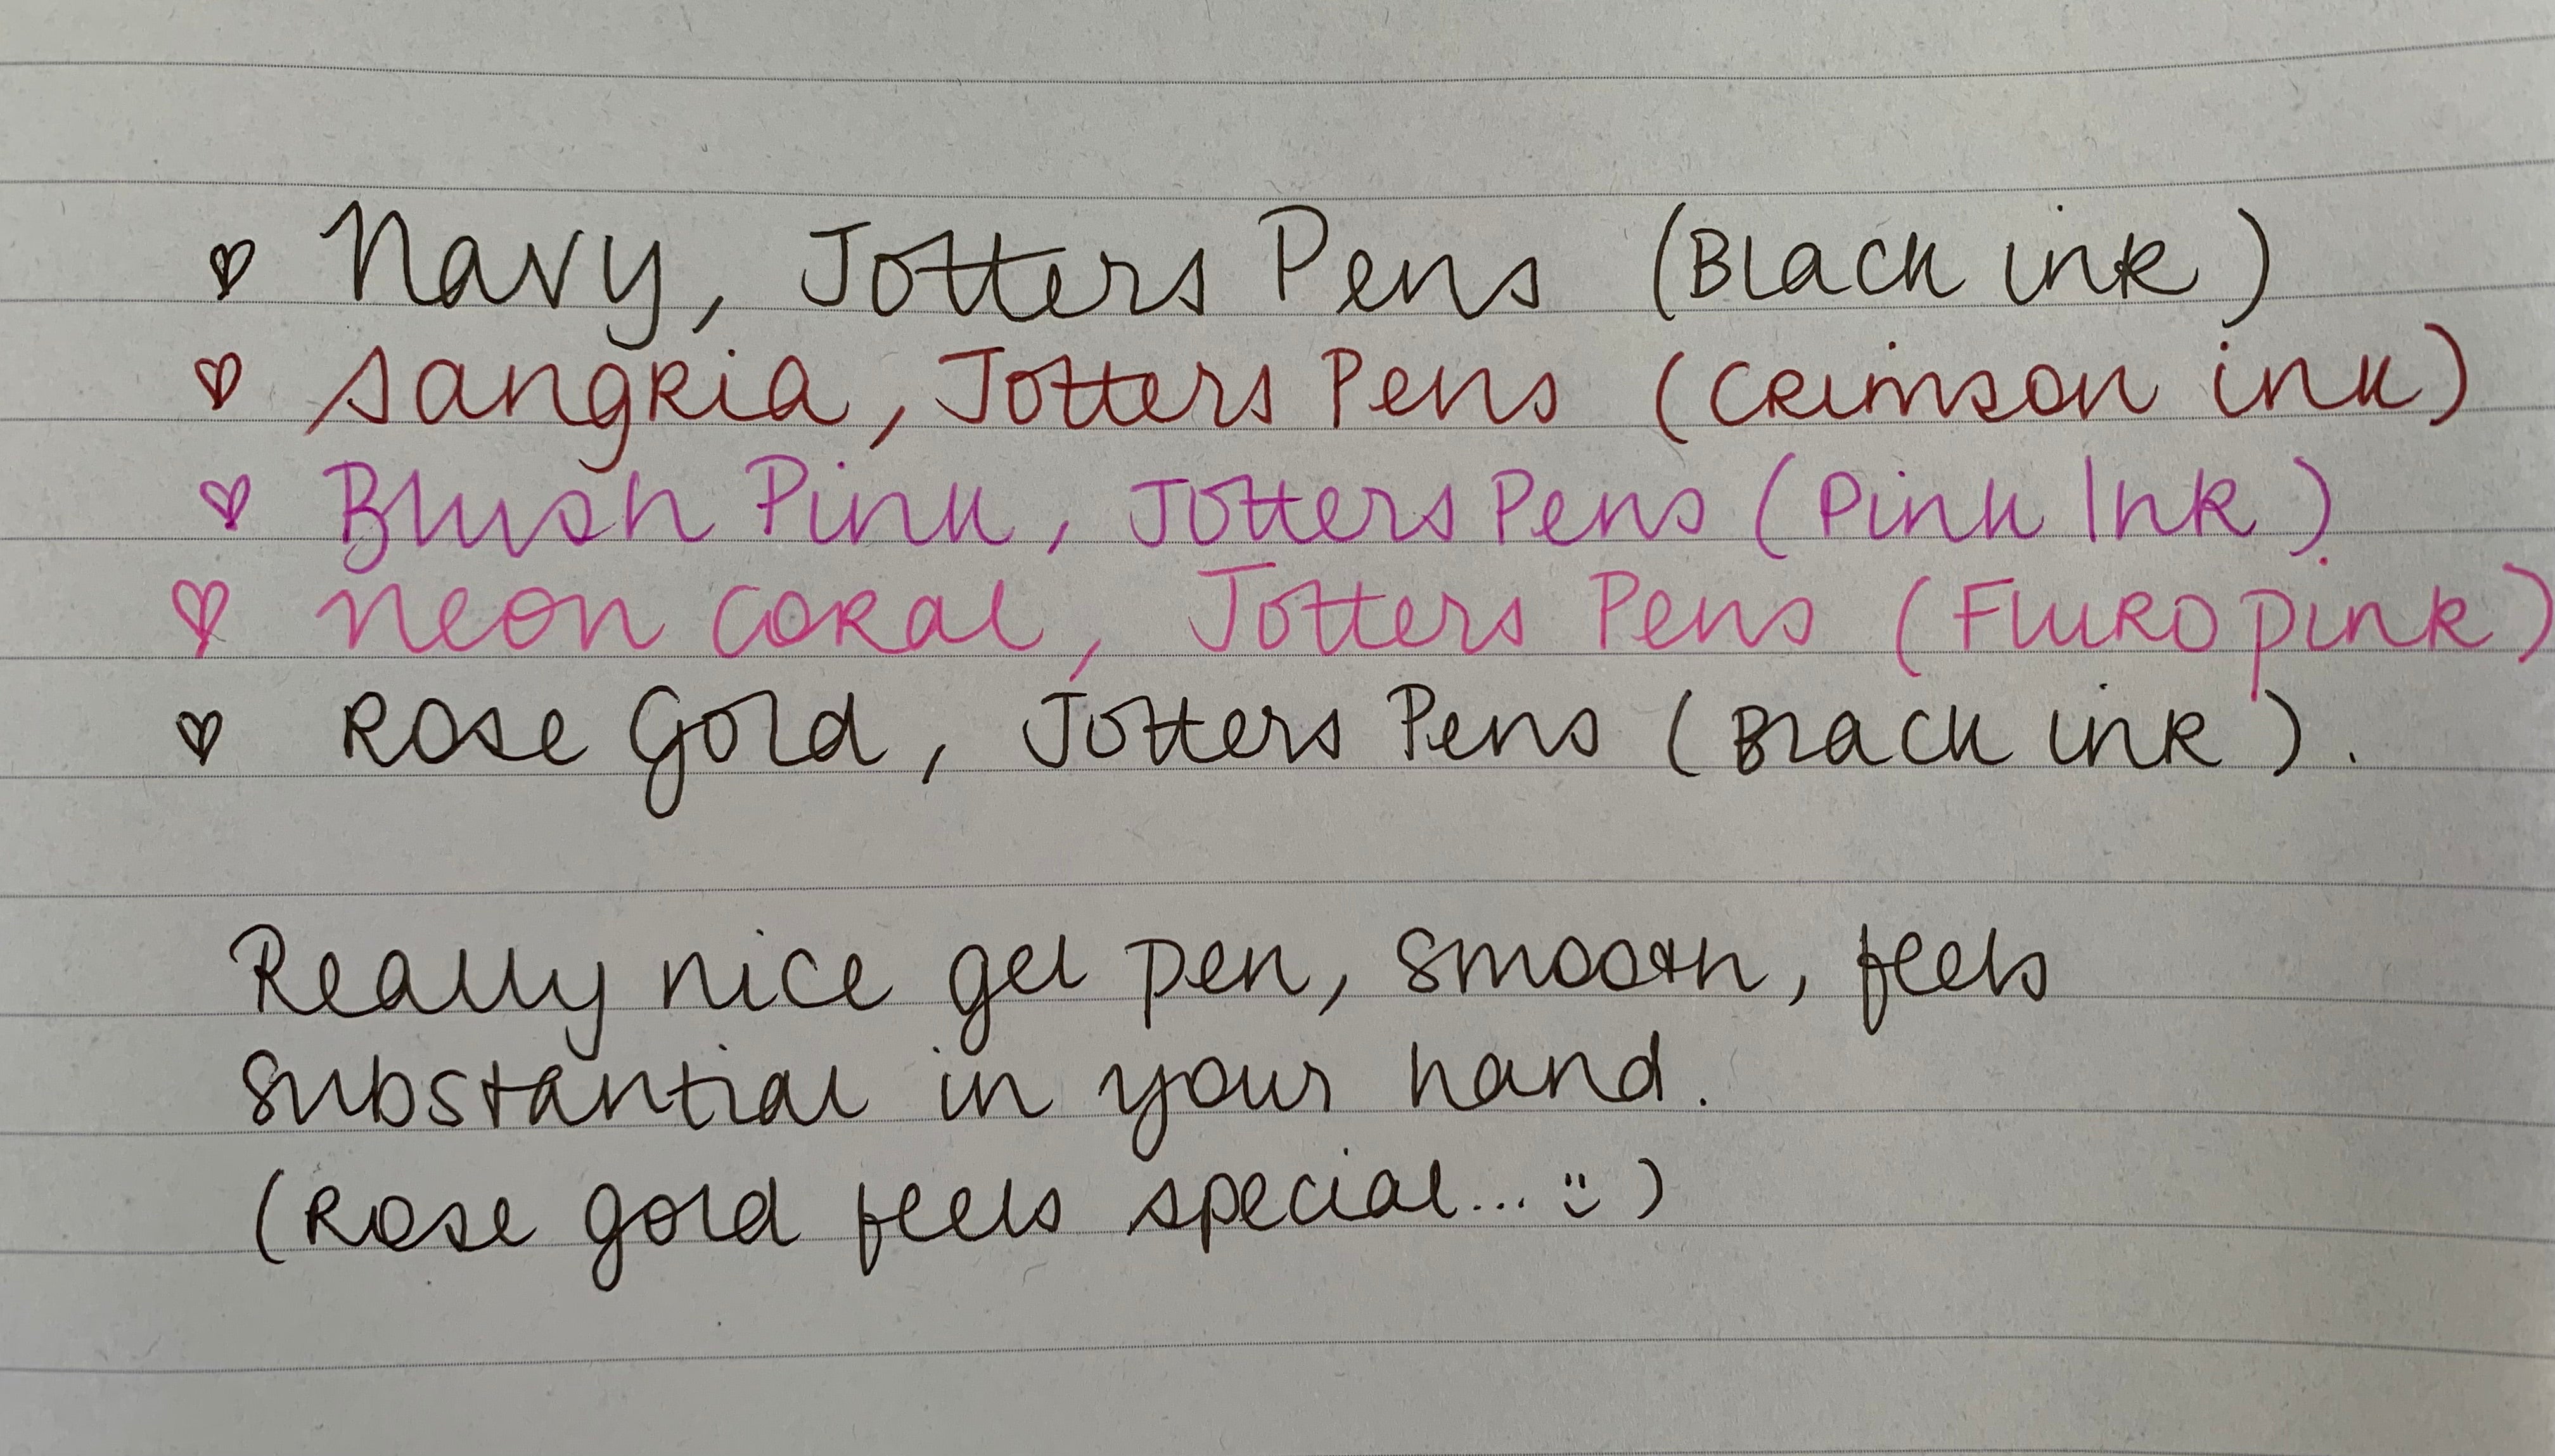 ♡ Navy, Jotters Pens (Black ink)
♡ Sangria, Jotters Pens (Crimson ink)
♡ Blush Pink, Jotters Pens (Pink Ink)
♡ Neon Coral, Jotters Pens (Fluro pink)
♡ Rose Gold, Jotters Pens (Black ink).
Really nice gel pen, smooth, feels
substantial in your hand.
(Rose gold feels special... :))